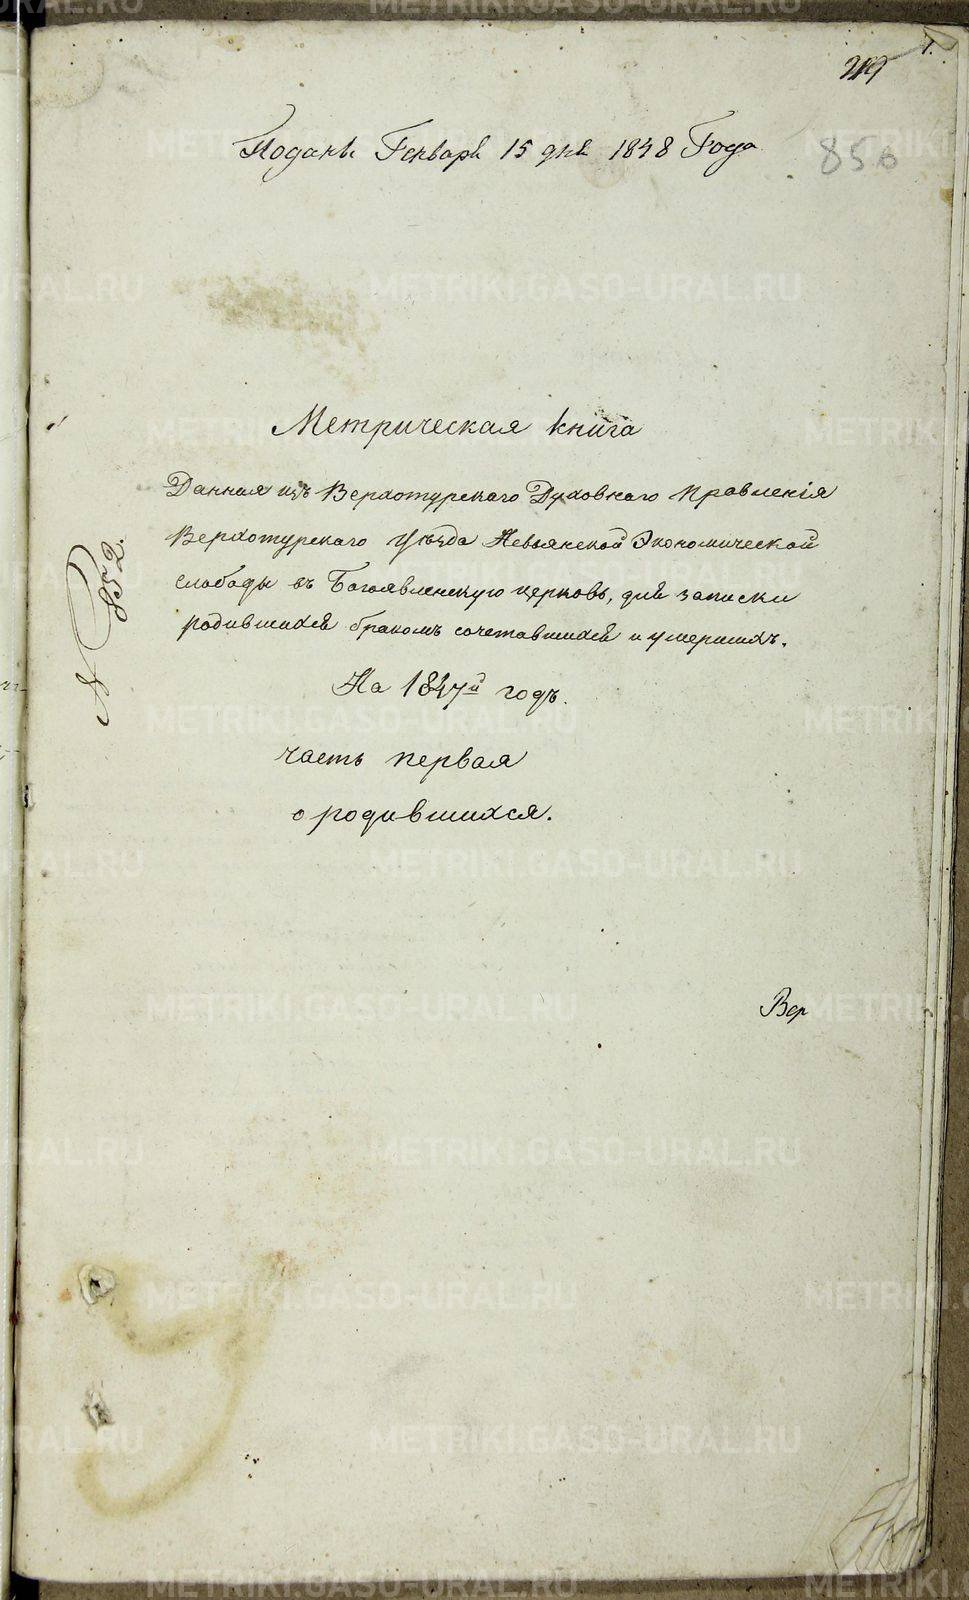 1.
219
Подана Генваря 15 дня 1848 Года
850
Метрическая книга
Данная изъ Верхотурскаго Духовнаго Правленія
Верхотурскаго Уѣзда Невьянской Экономической
слободы въ Богоявленскую церковь, для записки
родившихся бракомъ сочетавшихся и умершихъ.
На 1847й годъ.
часть первая
о родившихся.
№ 852.
Вер
METRIKI.GASO-URAL.RU